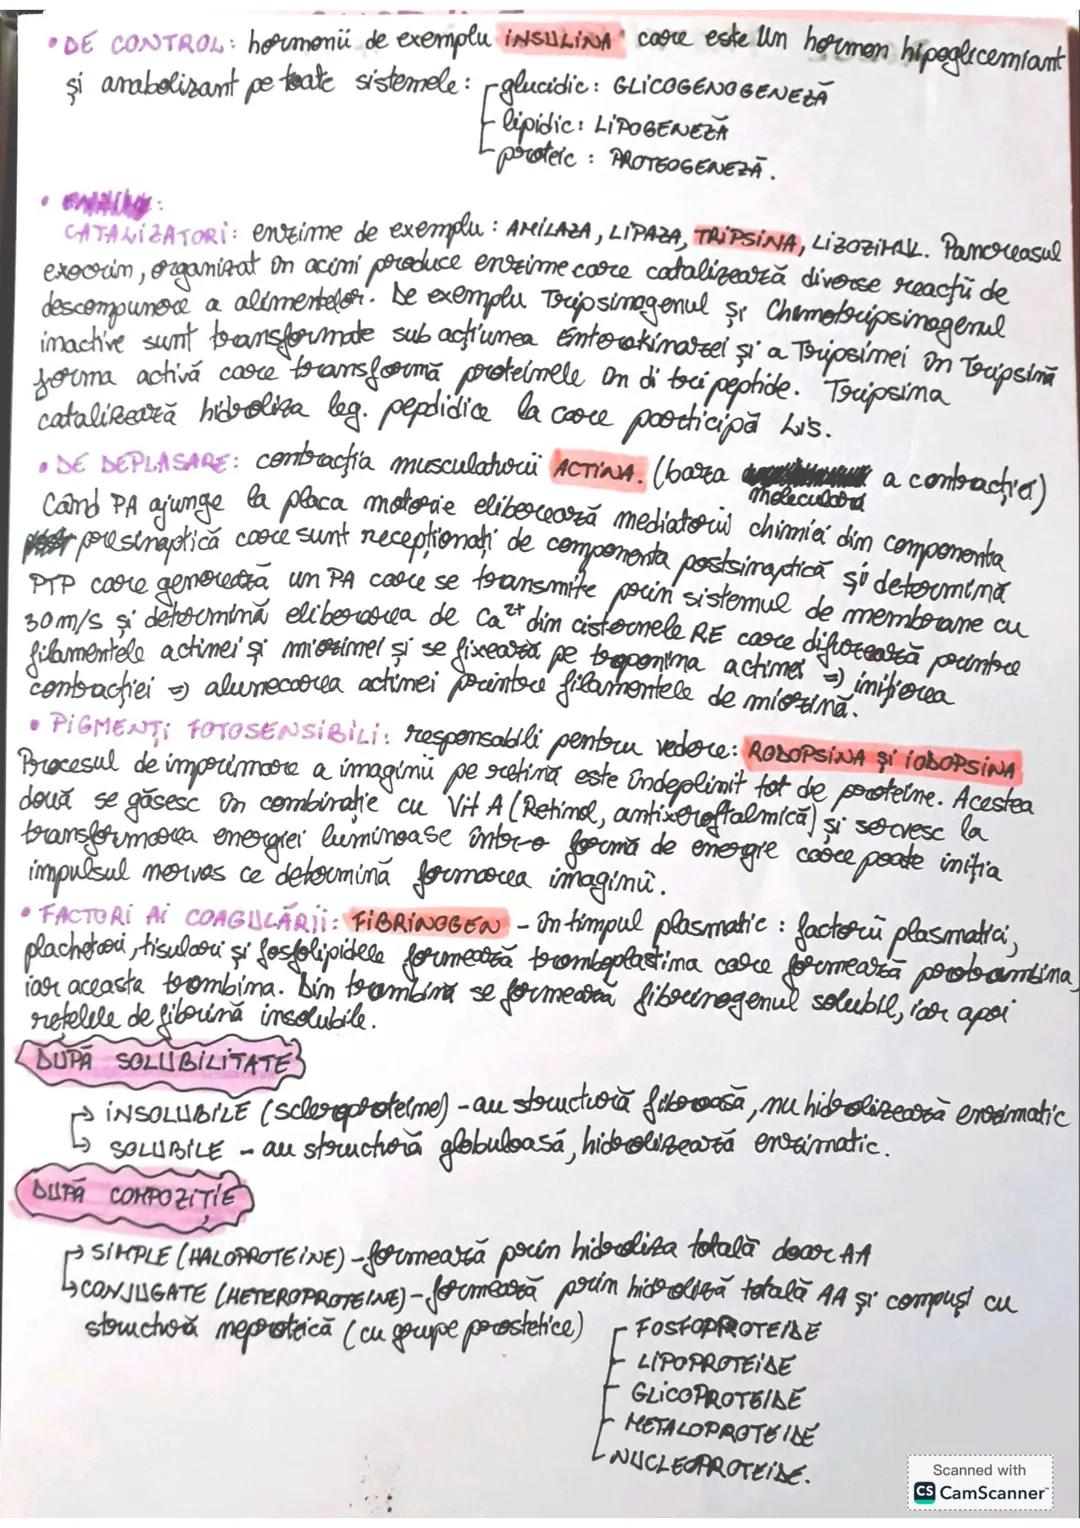 • DE CONTROL: hormonii de exemplu INSULINA care este un hormon hipoglicemiant
și anabolizant pe toate sistemele: glucidic: GLICOGENOGENEZĂ
lipidic: LIPOGENEZĂ
proteic: PROTEOGENEZĂ.
• CATALIZATORI: enzime de exemplu: AMILAZA, LIPAZA, TRIPSINA, LIZOZIMUL. Pancreasul
exocrin, organizat în acini produce enzime care catalizează diverse reacții de
descompunere a alimentelor. De exemplu Tripsinogenul și Chimotripsinogenul
inactive sunt transformate sub acțiunea Enterokinazei și a Tripsinei în Tripsină
forma activă care transformă proteinele în di tri peptide. Tripsina
catalizează hidroliza leg. pepdidice la care participă Lis.
• DE DEPLASARE: contracția musculaturii ACTINA. (baza moleculară a contracției)
Când PA ajunge la placa motorie eliberează mediatorii chimici din componenta
presinaptică care sunt recepționați de componenta postsinaptică și determină
PTP care generează un PA care se transmite prin sistemul de membrane cu
30m/s și determină eliberarea de Ca2+ din cisternele RE care difuzează printre
filamentele actinei și miozinei și se fixează pe troponina actinei => inițierea
contracției => alunecarea actinei printre filamentele de miozină.
• PIGMENȚI FOTOSENSIBILI: responsabili pentru vedere: RODOPSINA și IODOPSINA
Procesul de imprimare a imaginii pe retină este îndeplinit tot de proteine. Acestea
două se găsesc în combinație cu Vit A (Retinol, antixeroftalmică) și servesc la
transformarea energiei luminoase într-o formă de energie care poate iniția
impulsul nervos ce determină formarea imaginii.
• FACTORI AI COAGULĂRII: FIBRINOGEN - în timpul plasmatic: factorii plasmatici,
plachetari, tisulari și fosfolipidele formează tromboplastina care formează protrombina,
iar aceasta trombina. Din trombină se formează fibrinogenul solubil, iar apoi
rețelele de fibrină insolubile.
DUPĂ SOLUBILITATE
INSOLUBILE (scleroproteine) - au structură fibroasă, nu hidrolizează enzimatic
SOLUBILE - au structură globuloasă, hidrolizează enzimatic.
DUPĂ COMPOZIȚIE
SIMPLE (HALOPROTEINE) - formează prin hidroliza totală doar AA
CONJUGATE (HETEROPROTEINE) - formează prin hidroliză totală AA și compuși cu
structură neproteică (cu grupe prostetice) FOSFOPROTEIDE
LIPOPROTEIDE
GLICOPROTEIDE
METALOPROTEIDE
NUCLEOPROTEIDE.
Scanned with
CS CamScanner